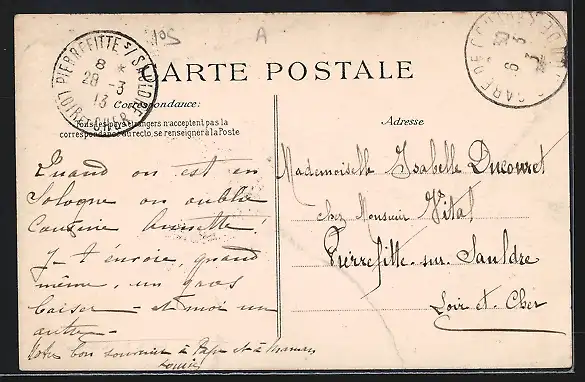 PIERREFITTE S/ SAULDRE
8 *
28 -3
13
LOIR-ET-CHER
A
CARTE POSTALE
Correspondance:
Tous les pays étrangers n'acceptent pas la
correspondance au recto, se renseigner à la Poste
Adresse
Quand on est en
Sologne on oublie
Cousine
J- t'envoie, quand
même, un gros
baiser - et moi un
autre -
bon souvenir à Papa et à Maman
Mademoiselle Isabelle Ducouret
chez Monsieur Vital
Pierrefitte-sur-Sauldre
Loir-et-Cher
GARE DE